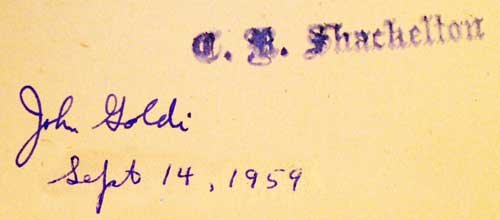 C. B. Shackelton
John Goldi
Sept 14, 1959